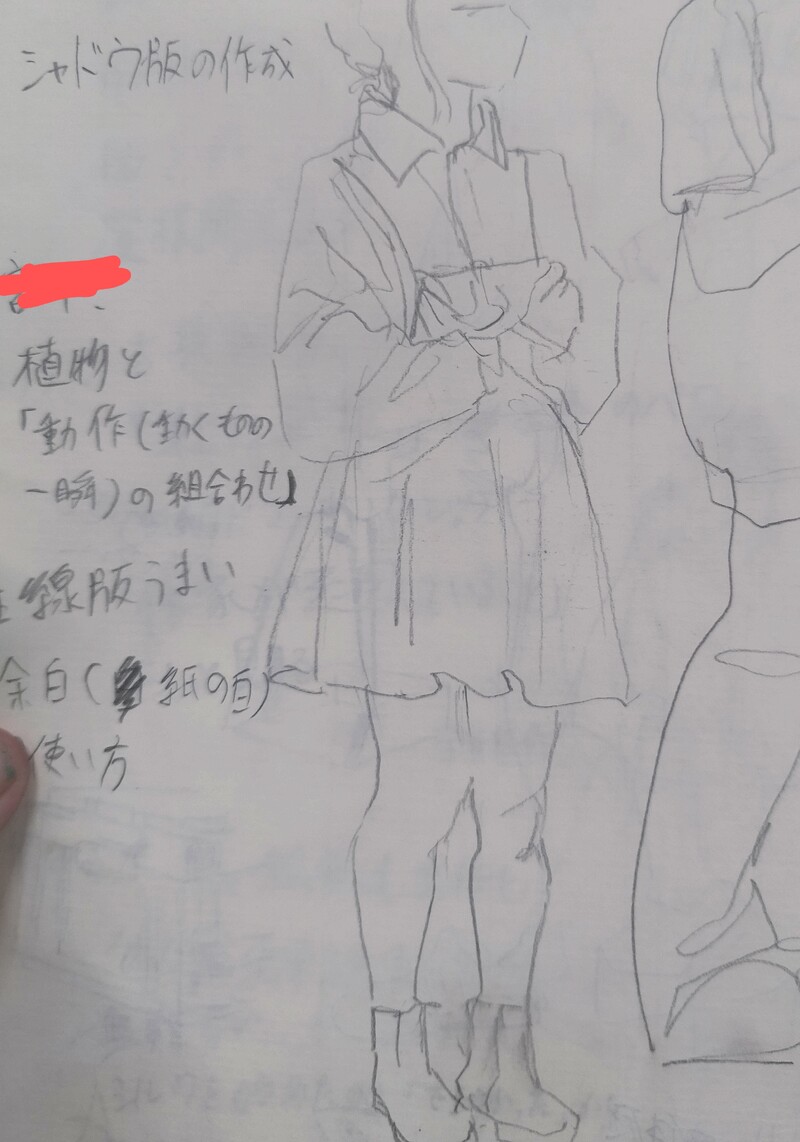 シャドウ版の作成
植物と
「動作(動くものの
一瞬)の組合わせ」
線版うまい
余白(紙の白)
使い方